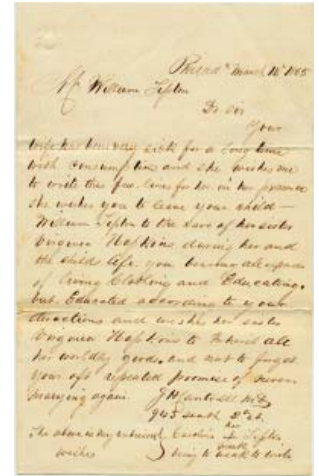 Philad<sup>a</sup> March 16<sup>th</sup> 1865
Mr William Tipton
Dr Sir
Your
wife has been very sick for a long time
with consumption and she wishes me
to write these few lines for her in her presence
she wishes you to leave your child —
William Tipton to the care of her sister
Virginia Hopkins during her and
the child life. you bearing all expenses
of living Clothing and Educating.
but Educated according to your
directions and wishes her sister
Virginia Hopkins to inherit all
her worldly goods. and not to forget
your oft repeated promise of never
marrying again.
J H Cantrell MD
945 South 2d St.
The above is my
wishes
Caroline Tipton
her
mark
being to weak to write